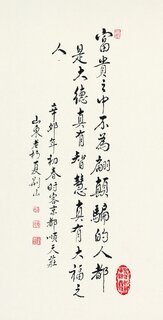 富貴之中不為翩顛騙的人都
是大德真有智慧真有大福之
人
辛卯年初春时客京都順天莊
山東老朽夏荆山